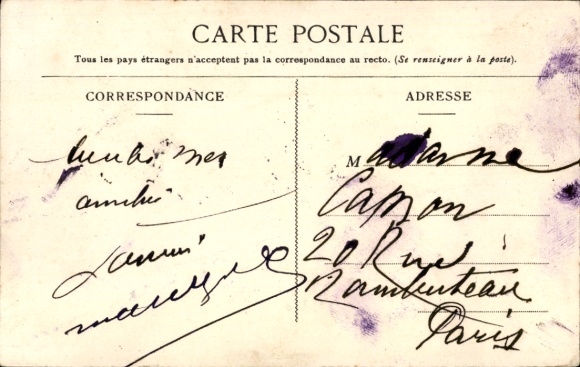 CARTE POSTALE
Tous les pays étrangers n'acceptent pas la correspondance au recto. (Se renseigner à la poste).
CORRESPONDANCE
mes
amitiés
ADRESSE
Madame
Capron
20 Rue
Rambuteau
Paris